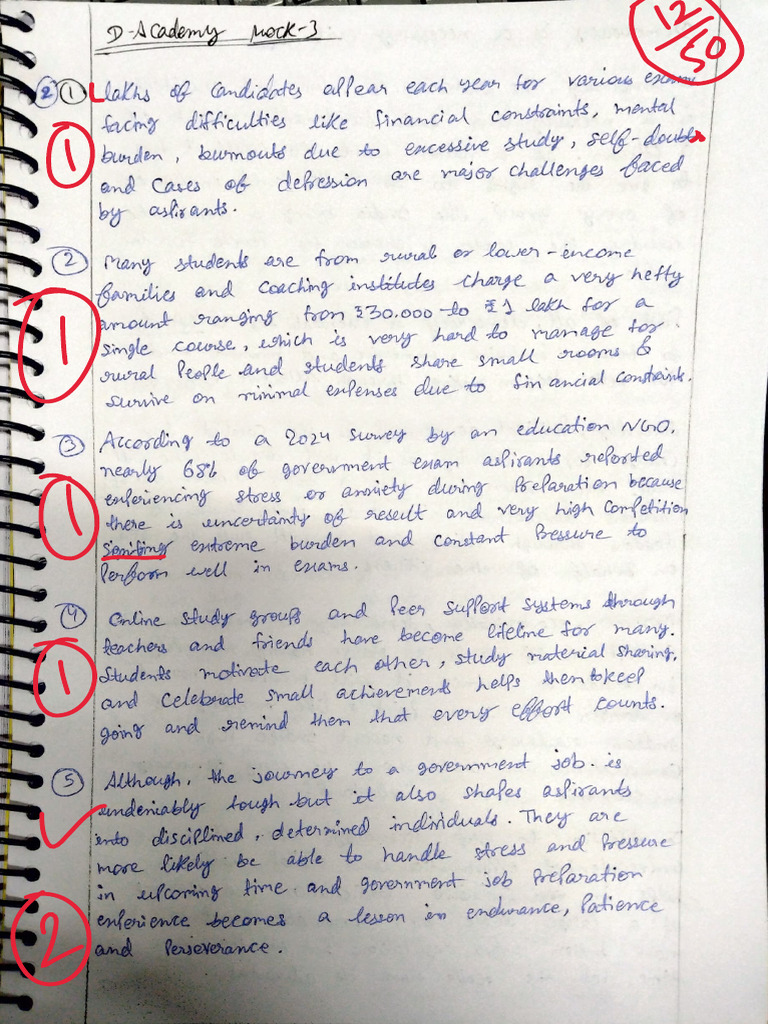 D-Academy Mock-3
12/50
2 1 Lakhs of candidates appear each year for various exams
facing difficulties like financial constraints, mental
1 burden, burnouts due to excessive study, self-doubts
and cases of depression are major challenges faced
by aspirants.
2 Many students are from rural or lower-encome
families and coaching institutes charge a very hefty
1 amount ranging from ₹30,000 to ₹1 lakh for a
single course, which is very hard to manage for
rural people and students share small rooms &
survive on minimal expenses due to financial constraints.
3 According to a 2024 survey by an education NGO,
nearly 68% of government exam aspirants reported
experiencing stress or anxiety during preparation because
1 there is uncertainty of result and very high competition
extreme burden and constant pressure to
perform well in exams.
4 Online study groups and peer support systems through
teachers and friends have become lifeline for many.
1 Students motivate each other, study material sharing,
and celebrate small achievements helps them to keep
going and remind them that every effort counts.
5 Although, the journey to a government job is
undeniably tough but it also shapes aspirants
into disciplined, determined individuals. They are
more likely be able to handle stress and pressure
in upcoming time and government job preparation
2 experience becomes a lesson in endurance, patience
and perseverance.